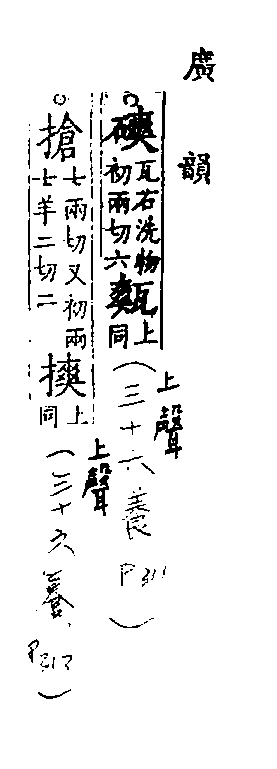 廣韻
○磢瓦石洗物初兩切六㼽上同(上聲三十六養P311)
○搶七兩切又初兩七羊二切二摤上同(上聲三十六養P312)